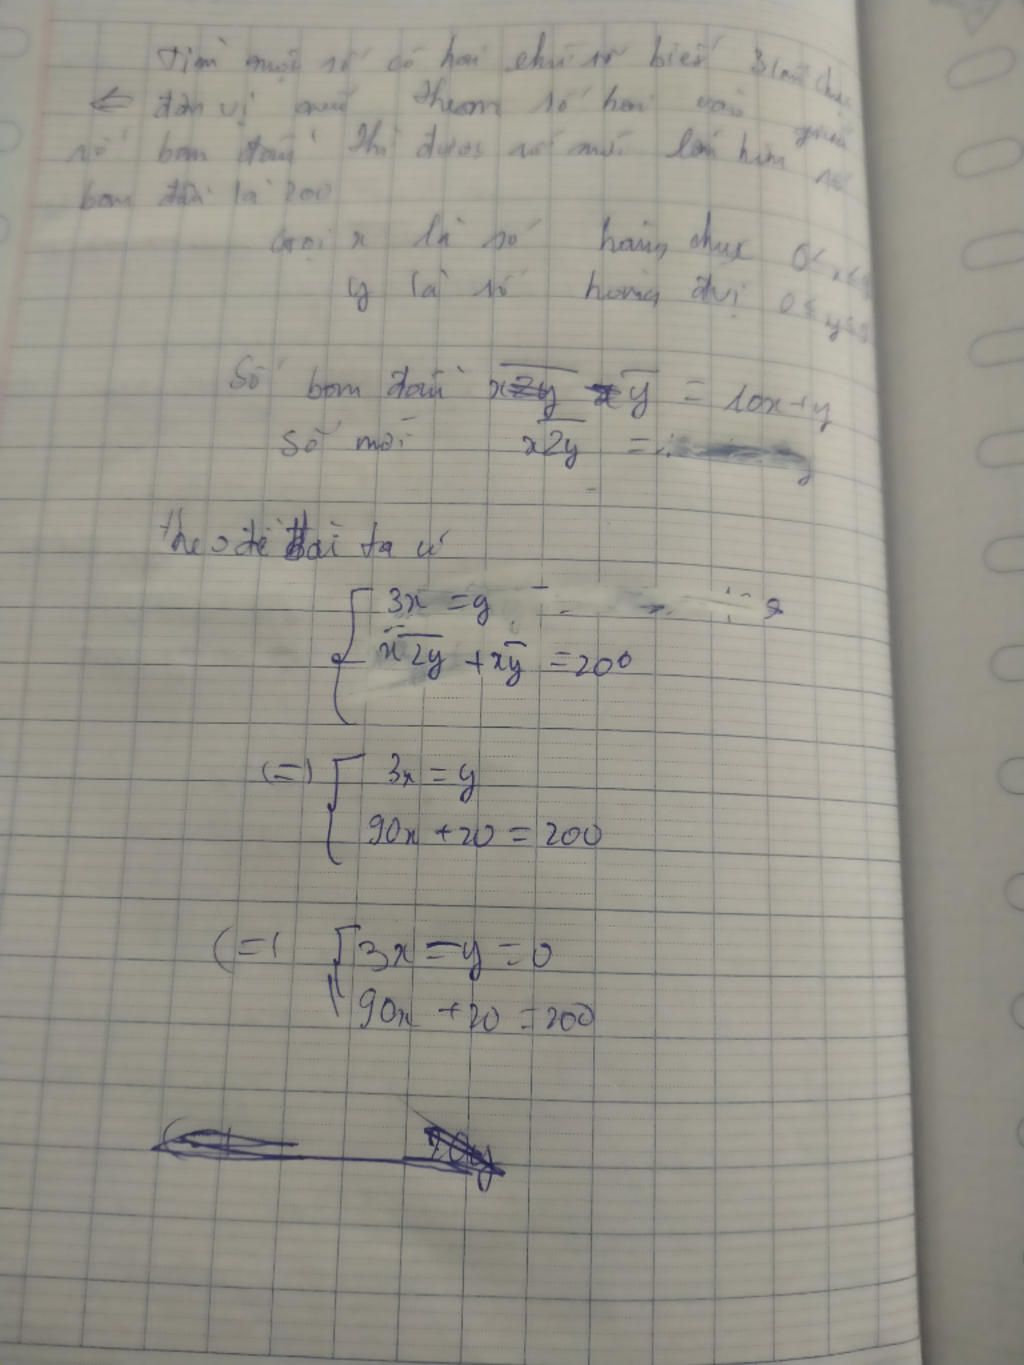 Tìm một số có hai chữ số biết 3 lần chục
= đơn vị nếu thêm số hai vào giữa
số ban đầu thì được số mới lớn hơn số
ban đầu là 200
Gọi x là số hàng chục 0 < x ≤ 9
y là số hàng đvị 0 ≤ y ≤ 9
Số ban đầu xy = 10x+y
Số mới x2y =
theo đề bài ta có
3x = y
x2y + xy = 200
(=) 3x = y
90x + 20 = 200
(=) 3x - y = 0
90x + 20 = 200